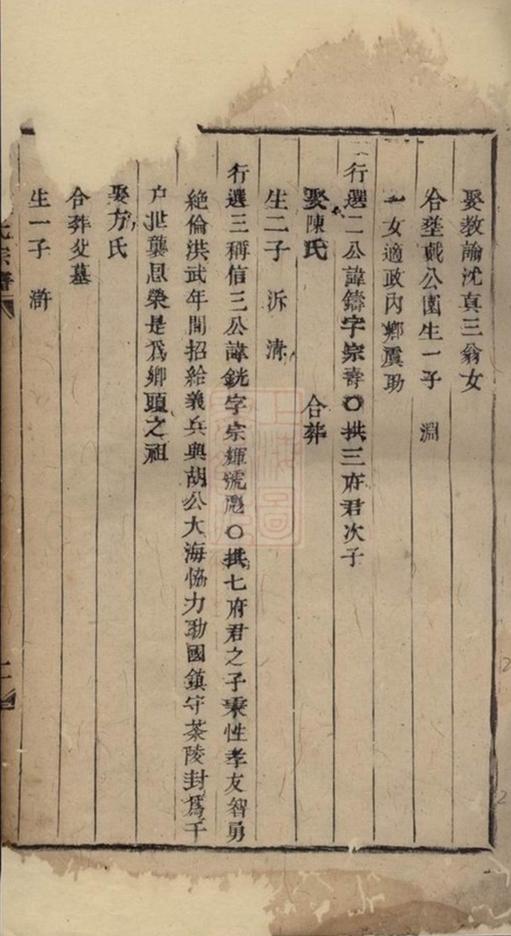 娶教諭沈真三翁女
合塟戲公園生一子　淵
一女適政內鄉虞助
行選二公諱鑄字宗壽〇拱三府君次子
娶陳氏　　合葬
生二子　泝　清
行選三稱信三公諱銑字宗輝號彪〇拱七府君之子秉性孝友智勇
絶倫洪武年間招給義兵與胡公大海恊力勷國鎮守茶陵封爲千
户世襲恩榮是爲鄉頭之祖
娶方氏
合葬父墓
生一子　滸